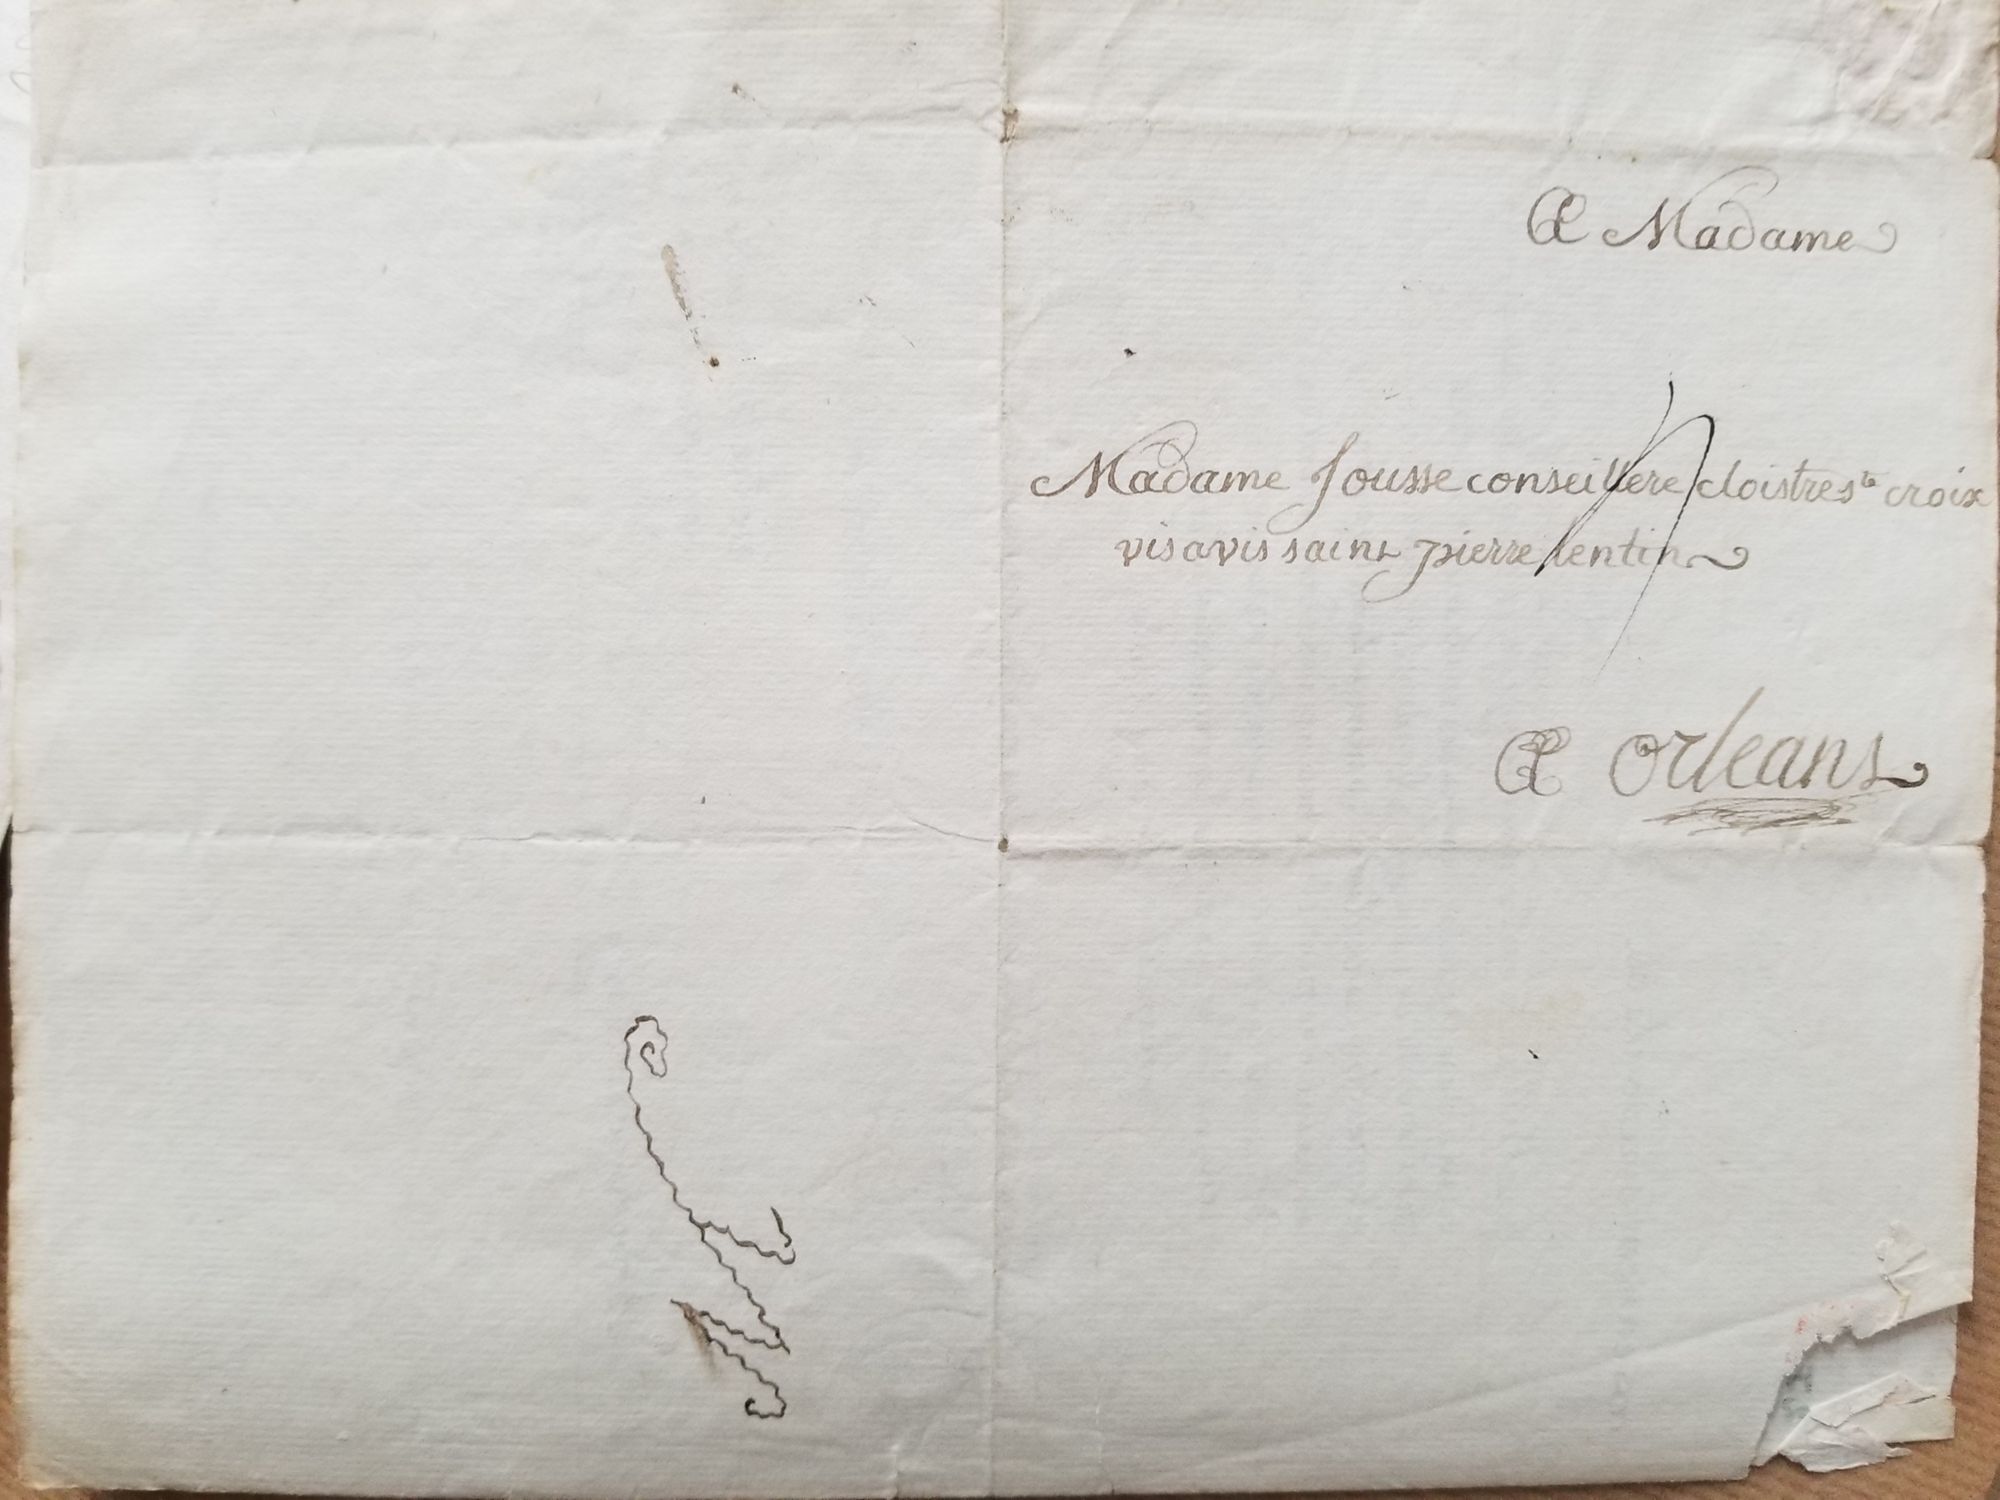 A Madame
Madame Jousse conseillere cloistre ste croix
vis a vis saint pierre lentin
A orleans